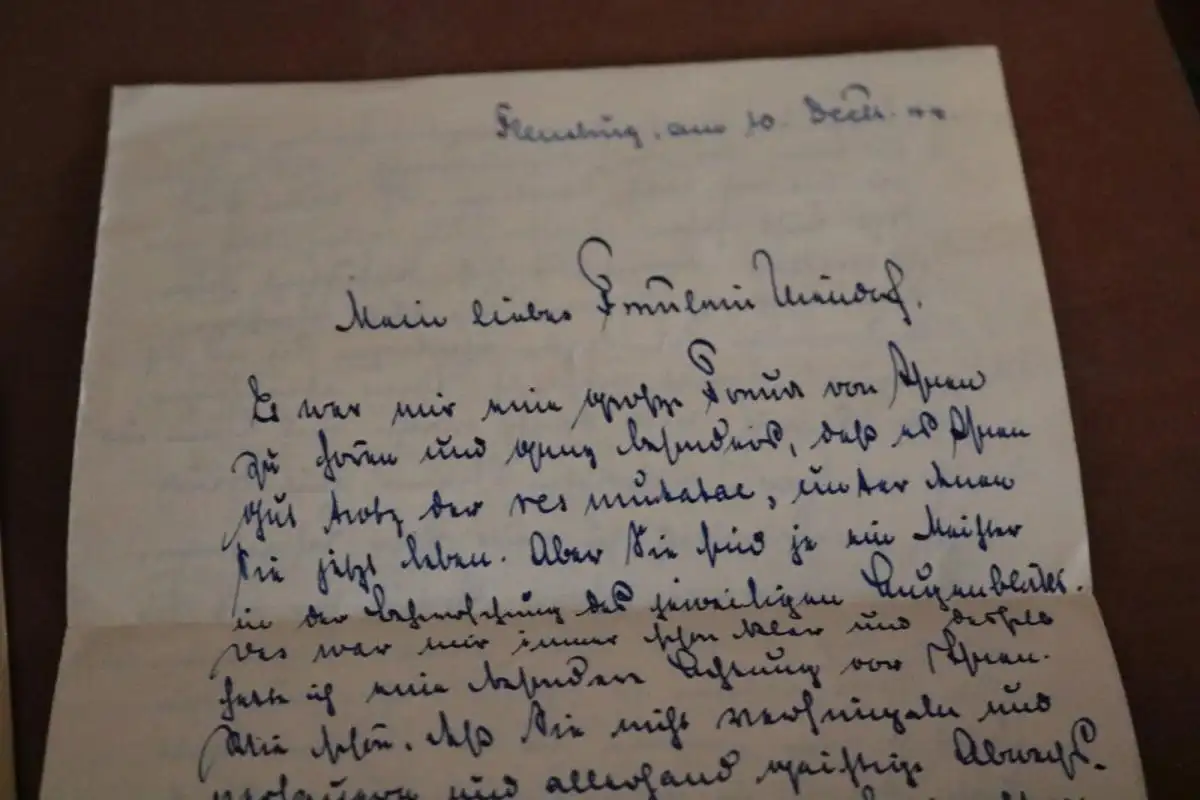 Flensburg, am 10. Dezb. 44.
Mein liebes Fräulein
Es war mir eine große Freude von Ihnen
zu hören und ganz besonders, daß es Ihnen
gut trotz der res mutatae, unter denen
Sie jetzt leben. Aber Sie sind ja ein Meister
in der Beherrschung des jeweiligen Augenblicks.
Das war mir immer schon klar und deshalb
hatte ich eine besondere Achtung vor Ihnen.
Wie schön, daß Sie nicht
und allerhand geistige Abwechs-